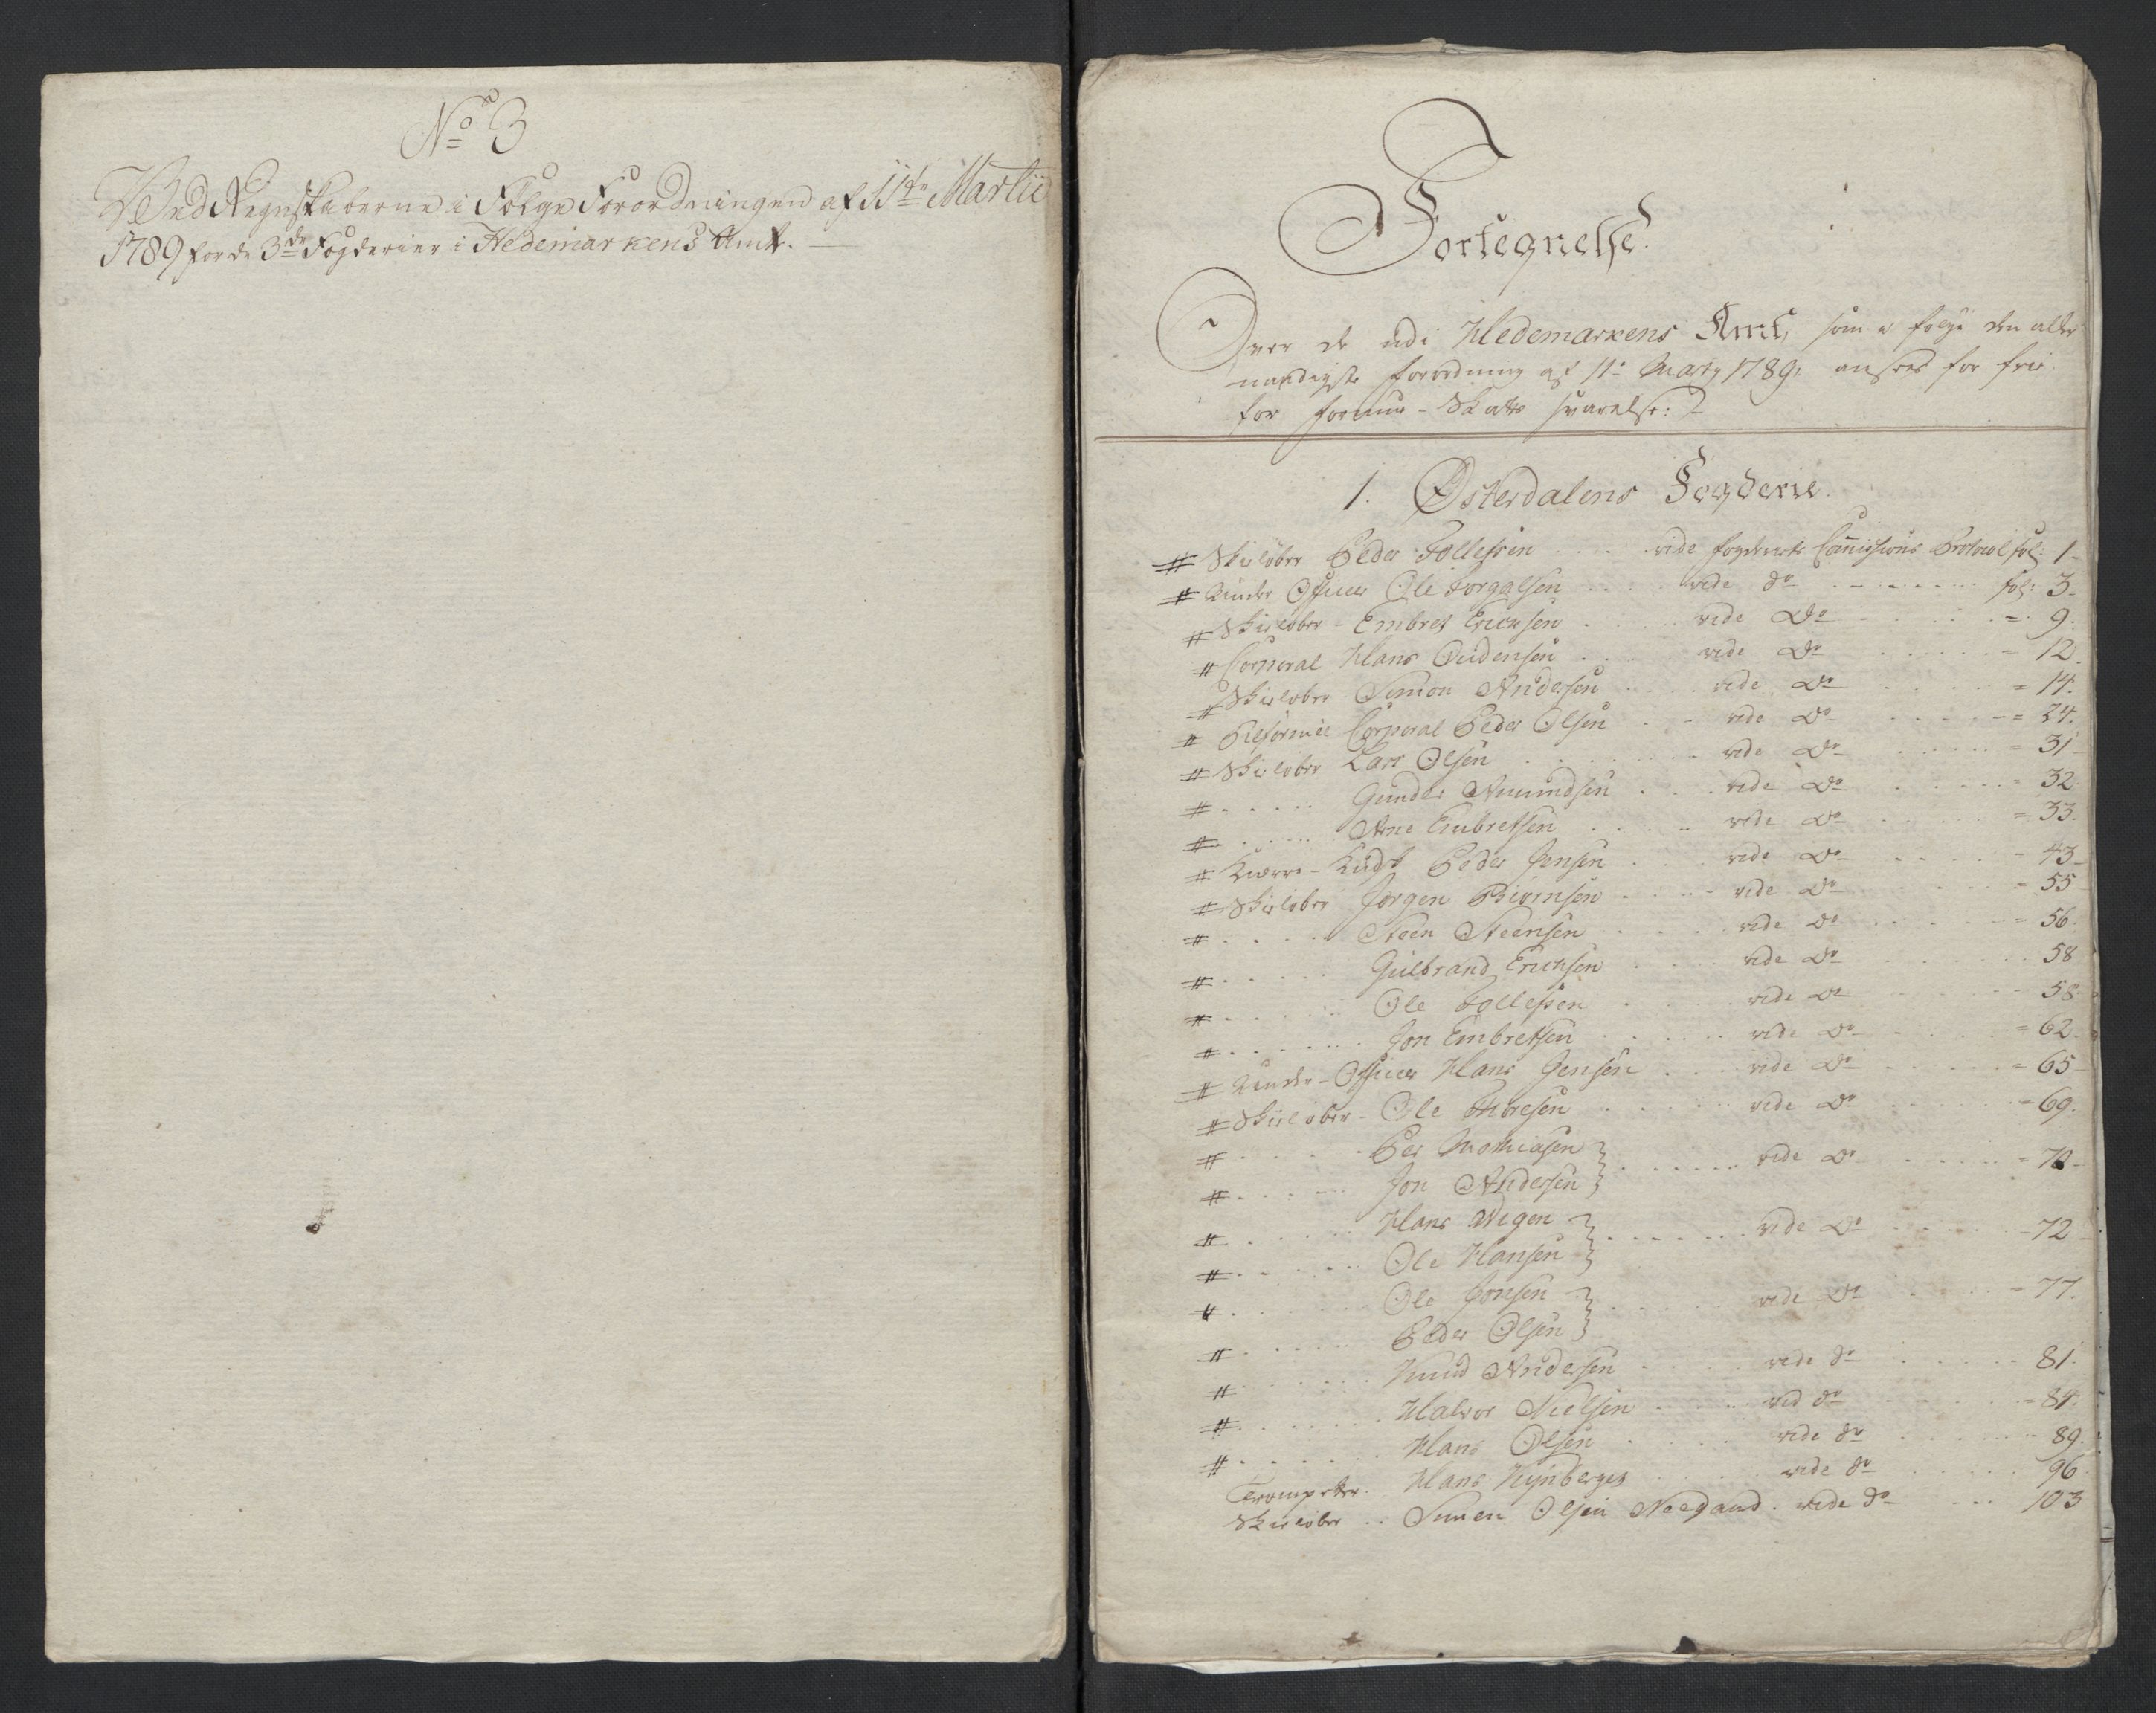 No 3
Ved Regnskaberne i Følge Forordningen af 11te Martii
1789 for de 3de Fogderier i Hedemarkens Amt.
Fortegnelse
Over de udi Hedemarkens Amt, som i følge den aller
naadigste forordning af 11te Marty 1789, ansees for frie
for formue-Skatts svarelse:
1. Østerdalens Fogderie.
# Skieløber Peder Tollefsen .... vide fogderiets Commissions Protocol fol: 1
# Under Officer Ole Torgalsen .... vide do ........ fol: 3
# Skieløber - Embret Ericksen .... vide Do ..... = 9.
# Corporal Hans Oudensen .... vide Do ..... = 12
# Skieløber Simon Andersen .... vide Do ..... = 14.
# Corporal Peder Olsen .. vide Do ..... = 24.
# Skieløber Lars Olsen ....... vide Do ..... = 31
# ..... Gunder Amundsen ... vide Do ..... = 32
# ..... Arne Embretsen .... vide Do ..... = 33.
# Peder Jensen ... vide Do ..... = 43
# Skieløber Jørgen Biørnsen .... vide Do ..... = 55
# ..... Steen Steensen .... vide Do ..... = 56
# ..... Gulbrand Ericksen .... vide Do ..... 58
# ..... Ole Tollefsen .... vide Do ..... 58
# ....... Jon Embretsen ..... vide Do ..... = 62
# Under-Officer Hans Jensen .... vide Do ..... = 65
# Skieløber - Ole Thoresen ..... vide Do ..... = 69.
# ..... Per Mathiasen }
# ..... Jon Andersen } ...... vide Do ..... = 72
# ..... Hans Wigen }
# ..... Ole Hansen } ...... vide Do ..... - 72
# ..... Ole Jonsen }
# ..... Peder Olsen } ..... vide Do ..... = 77.
# ..... Knud Andersen .... vide do ..... 81.
# ..... Halvor Nielsen .... vid do ..... = 84.
# ..... Hans Olsen .... vide do ..... 89.
Trompetter. Hans ..... vide do ..... 96
Skieløber .. Simen Olsen . vide do .... 103